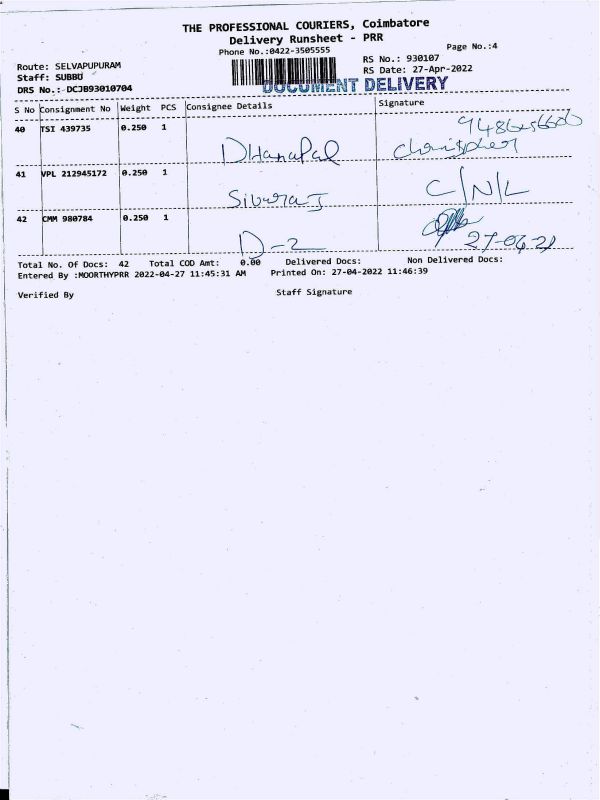 THE PROFESSIONAL COURIERS, Coimbatore
Delivery Runsheet - PRR
Phone No.:0422-3505555
Page No.:4
Route: SELVAPUPURAM
RS No.: 930107
Staff: SUBBU
RS Date: 27-Apr-2022
DRS No.:-DCJB93010704
DOCUMENT DELIVERY
S No Consignment No Weight PCS Consignee Details Signature
40 TSI 439735 0.250 1 DHanaPal christpher
41 VPL 212945172 0.250 1 SivaraJ C/N/L
42 CMM 980784 0.250 1 D-2
Total No. Of Docs: 42 Total COD Amt: 0.00 Delivered Docs: Non Delivered Docs:
Entered By :MOORTHYPRR 2022-04-27 11:45:31 AM Printed On: 27-04-2022 11:46:39
Verified By Staff Signature